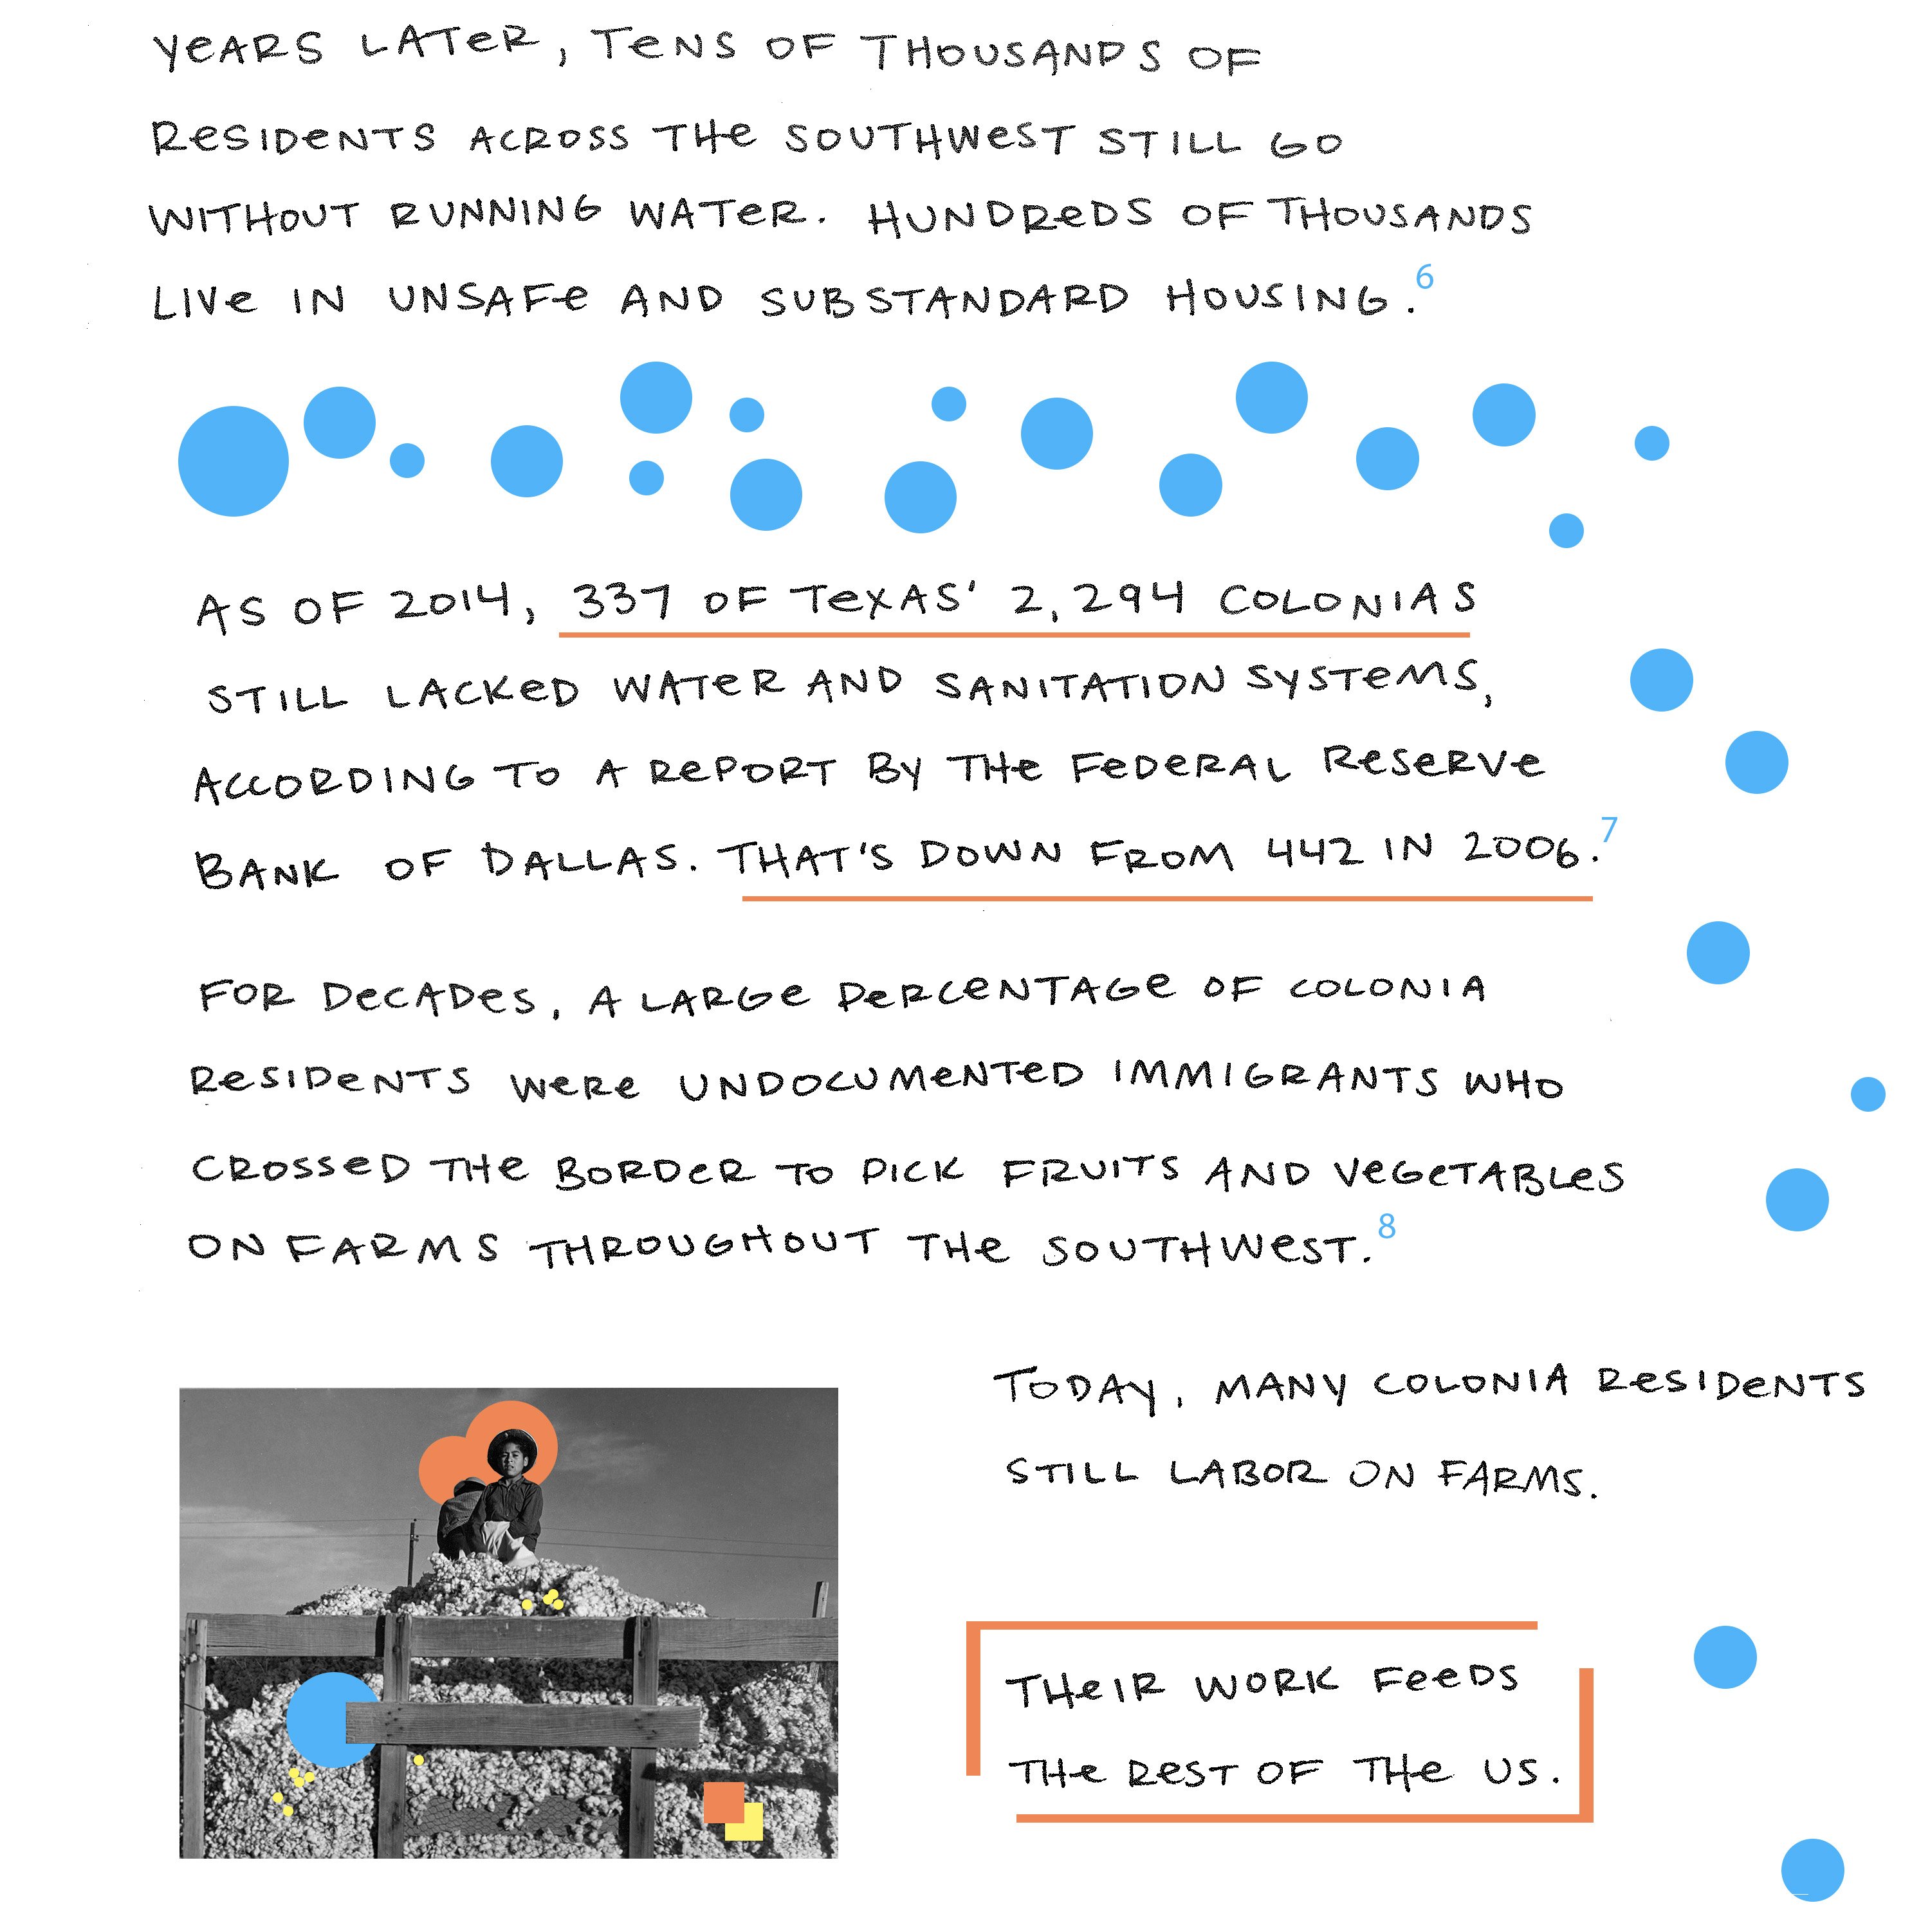 YEARS LATER, TENS OF THOUSANDS OF
RESIDENTS ACROSS THE SOUTHWEST STILL GO
WITHOUT RUNNING WATER. HUNDREDS OF THOUSANDS
LIVE IN UNSAFE AND SUBSTANDARD HOUSING.6
AS OF 2014, 337 OF TEXAS' 2,294 COLONIAS
STILL LACKED WATER AND SANITATION SYSTEMS,
ACCORDING TO A REPORT BY THE FEDERAL RESERVE
BANK OF DALLAS. THAT'S DOWN FROM 442 IN 2006.7
FOR DECADES, A LARGE PERCENTAGE OF COLONIA
RESIDENTS WERE UNDOCUMENTED IMMIGRANTS WHO
CROSSED THE BORDER TO PICK FRUITS AND VEGETABLES
ON FARMS THROUGHOUT THE SOUTHWEST.8
TODAY, MANY COLONIA RESIDENTS
STILL LABOR ON FARMS.
THEIR WORK FEEDS
THE REST OF THE US.